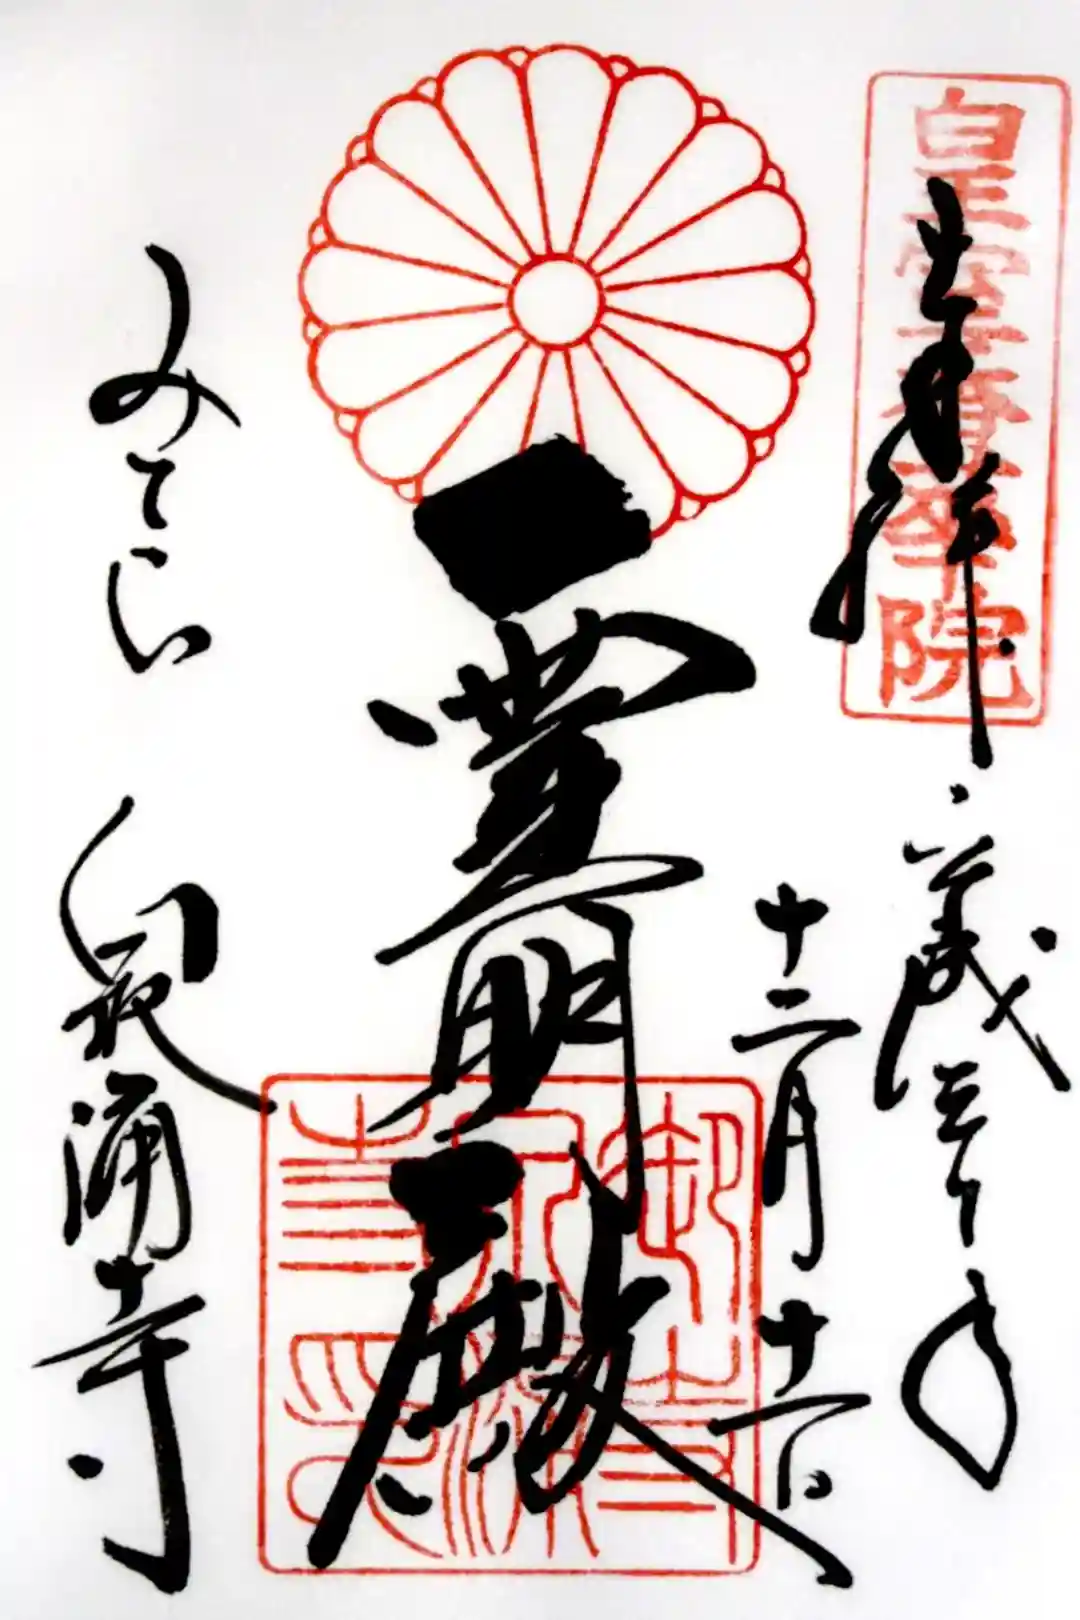 皇室香華院
奉拝 平成三十年
十二月十日
霊明殿
みてら 泉涌寺
御寺泉涌寺印